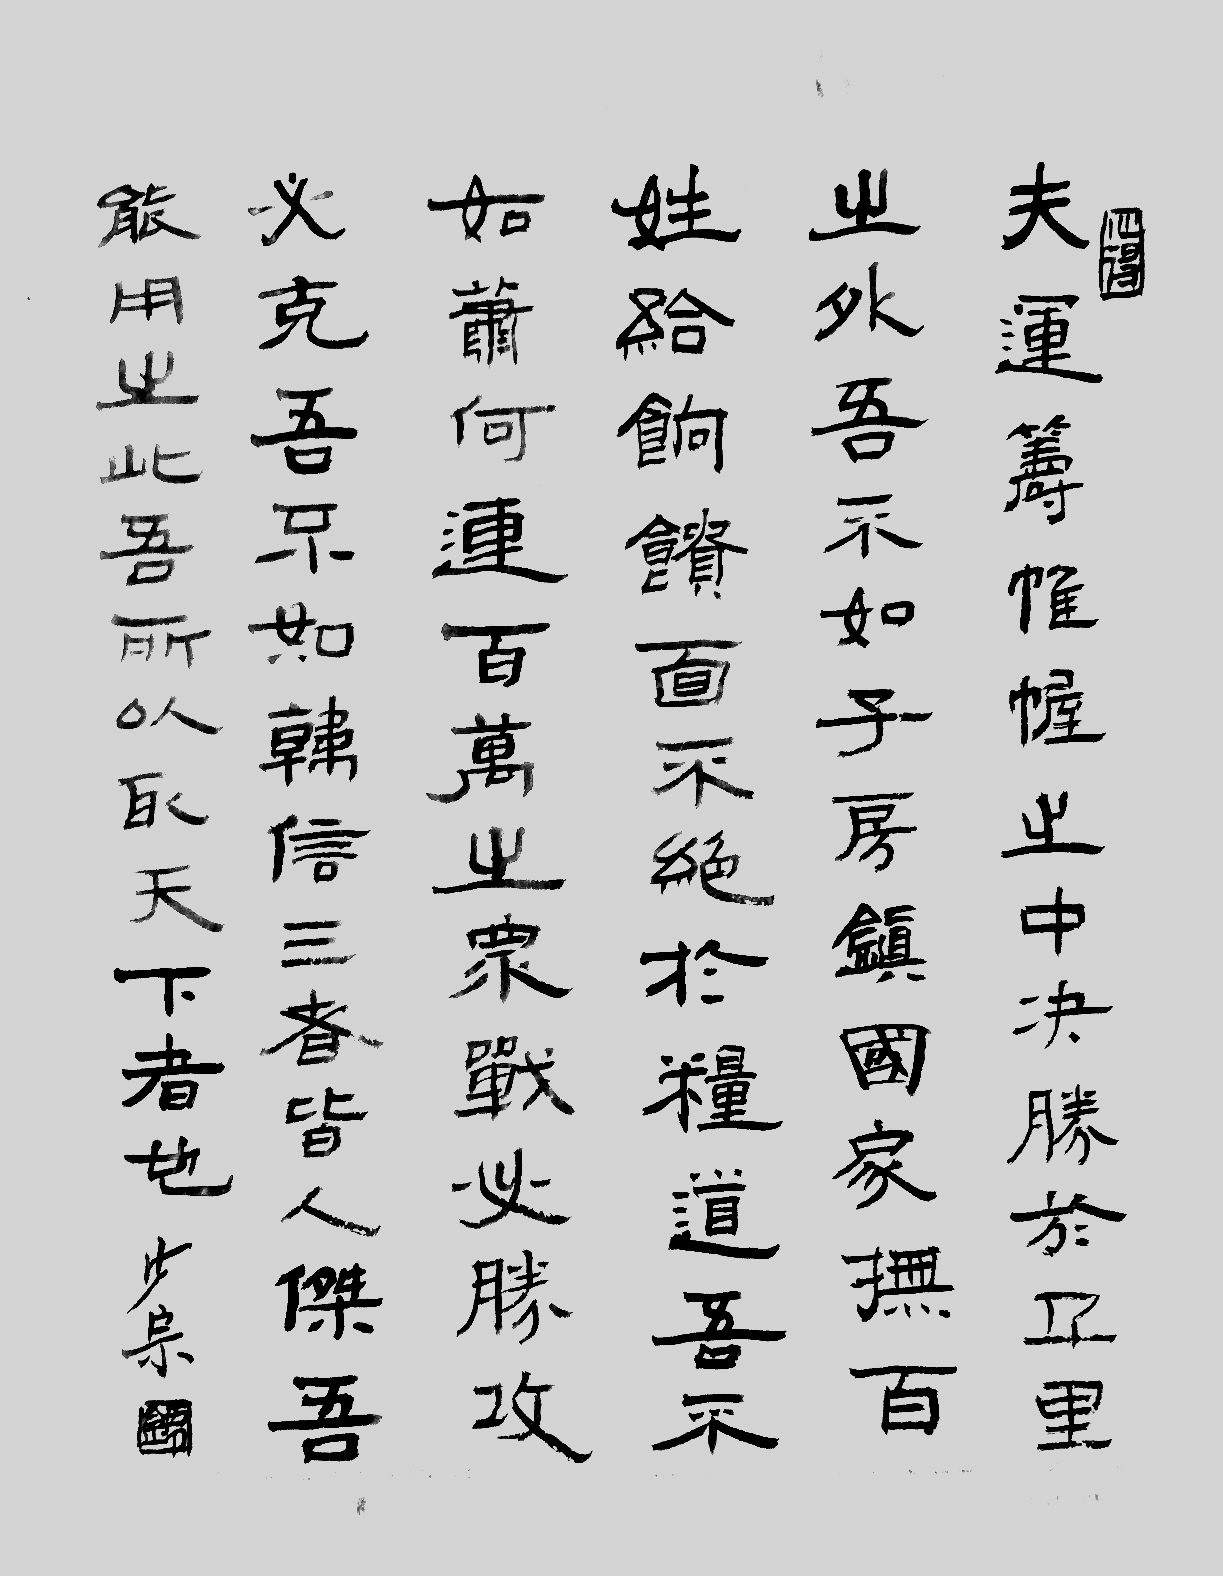 夫運籌帷幄之中決勝於里
之外吾不如子房鎮國家撫百
姓給餉饋面不絕於糧道吾不
如蕭何連百萬之眾戰必勝攻
必克吾不如韓信三者皆人傑吾
能用之此吾所以取天下者也